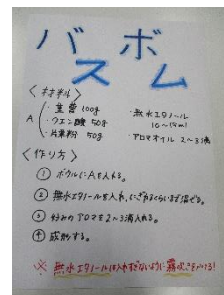 バスボム
〈材料〉
A
・重曹 100g
・クエン酸 50g
・片栗粉 50g
・無水エタノール
10〜15ml
・アロマオイル 2〜3滴
〈作り方〉
① ボウルにAを入れる。
② 無水エタノールを入れ、にぎれるくらいまで混ぜる。
③ 好みのアロマを2〜3滴入れる。
④ 成形する。
※ 無水エタノールは入れすぎないように霧吹きで